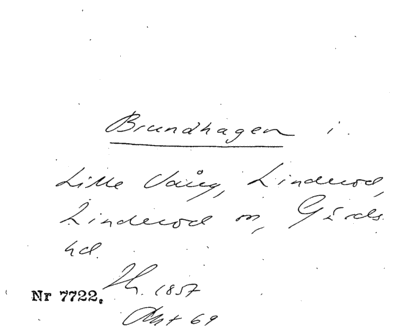 Brundhagen i
Lille Vång, Linderod,
Linderod sn, Gärds
hd.
Nr 7722.
1857
Akt 69